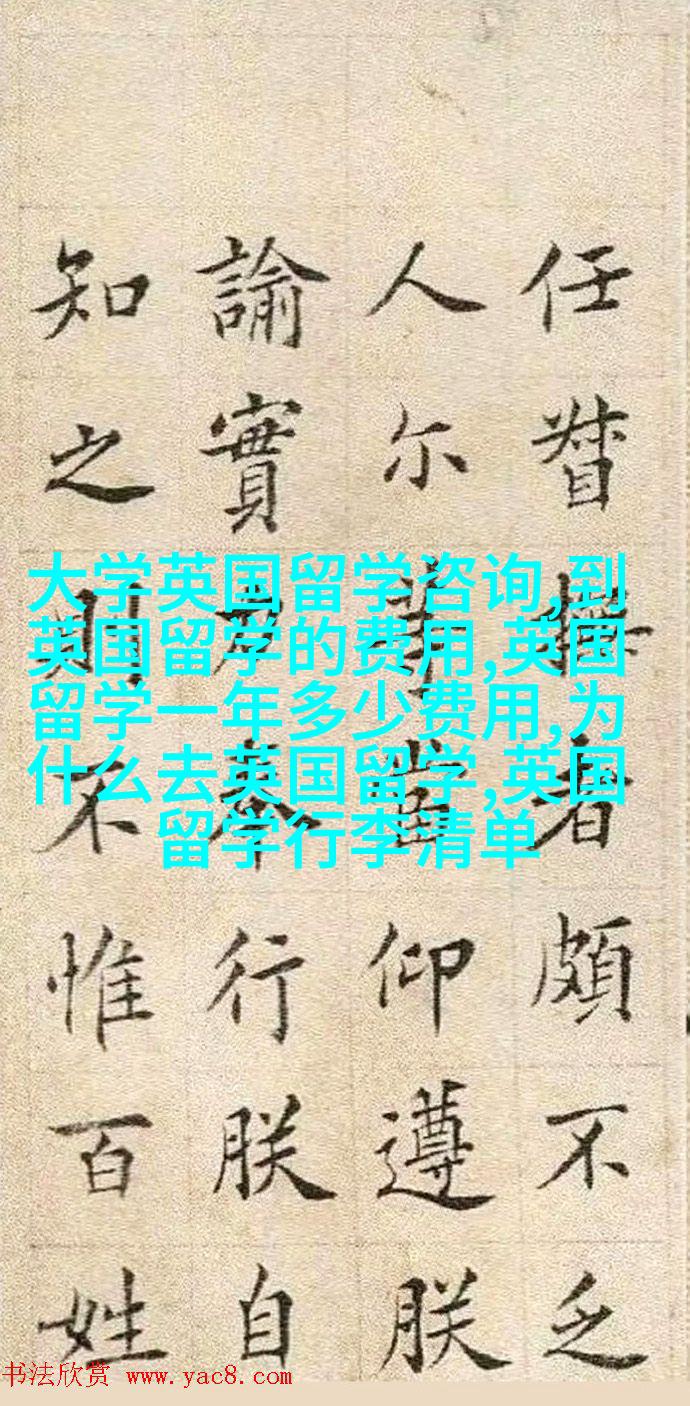 任督撫者頗不乏
人尔等當仰遵朕
諭實力奉行朕自
知之則不惟百姓
大学英国留学咨询,到
英国留学的费用,英国
留学一年多少费用,为
什么去英国留学,英国
留学行李清单
书法欣赏 www.yac8.com